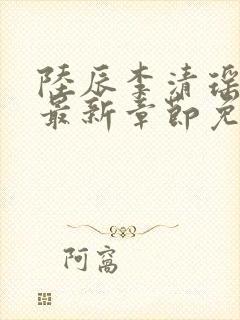 陸辰李清瑶
最新章節免
阿窩